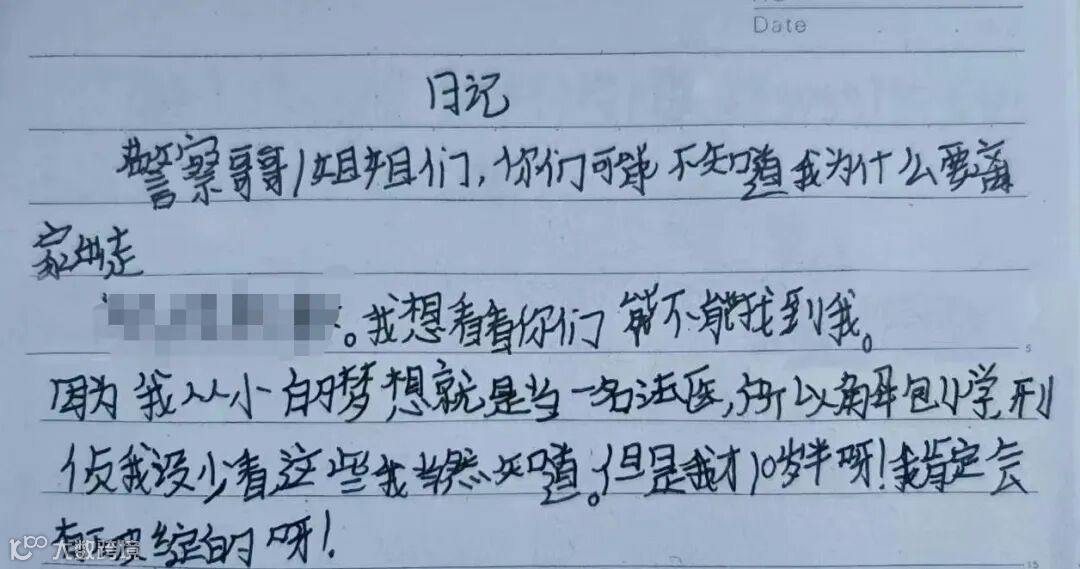 Date
日记
警察哥哥/姐姐们,你们可能不知道我为什么要离
家出走
。我想看看你们能不能找到我。
因为我从小的梦想就是当一名法医,所以解母包小学刑
侦我没少看,这些我当然知道。但是我才10岁半呀!我肯定会
有破绽的呀!
大数跨境